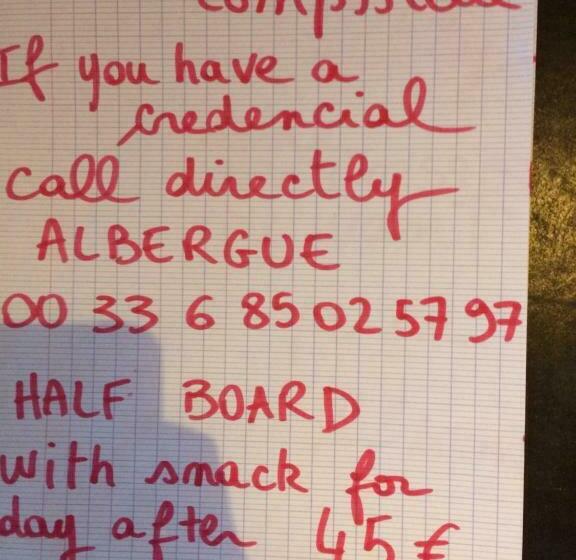 If you have a
credencial
call directly
ALBERGUE
00 33 6 85 02 57 97
HALF BOARD
with snack for
day after 45 €